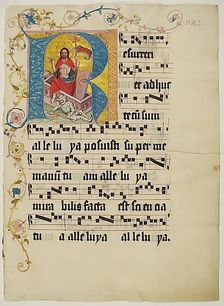 R
esurrexi
et adhuc
tecū sum
al le lu ya posuisti su per me
manū tu am alle lu ya
mira bilis facta est sci en cia
tu a alle lu ya al le lu ya.